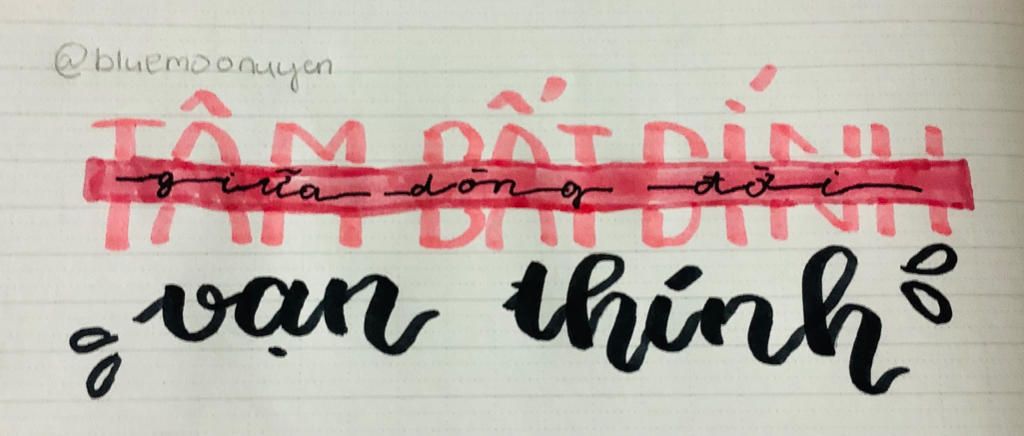 @bluemoonuyen
TÂM BẤT DÍNH
giữa dòng đời
vạn thính